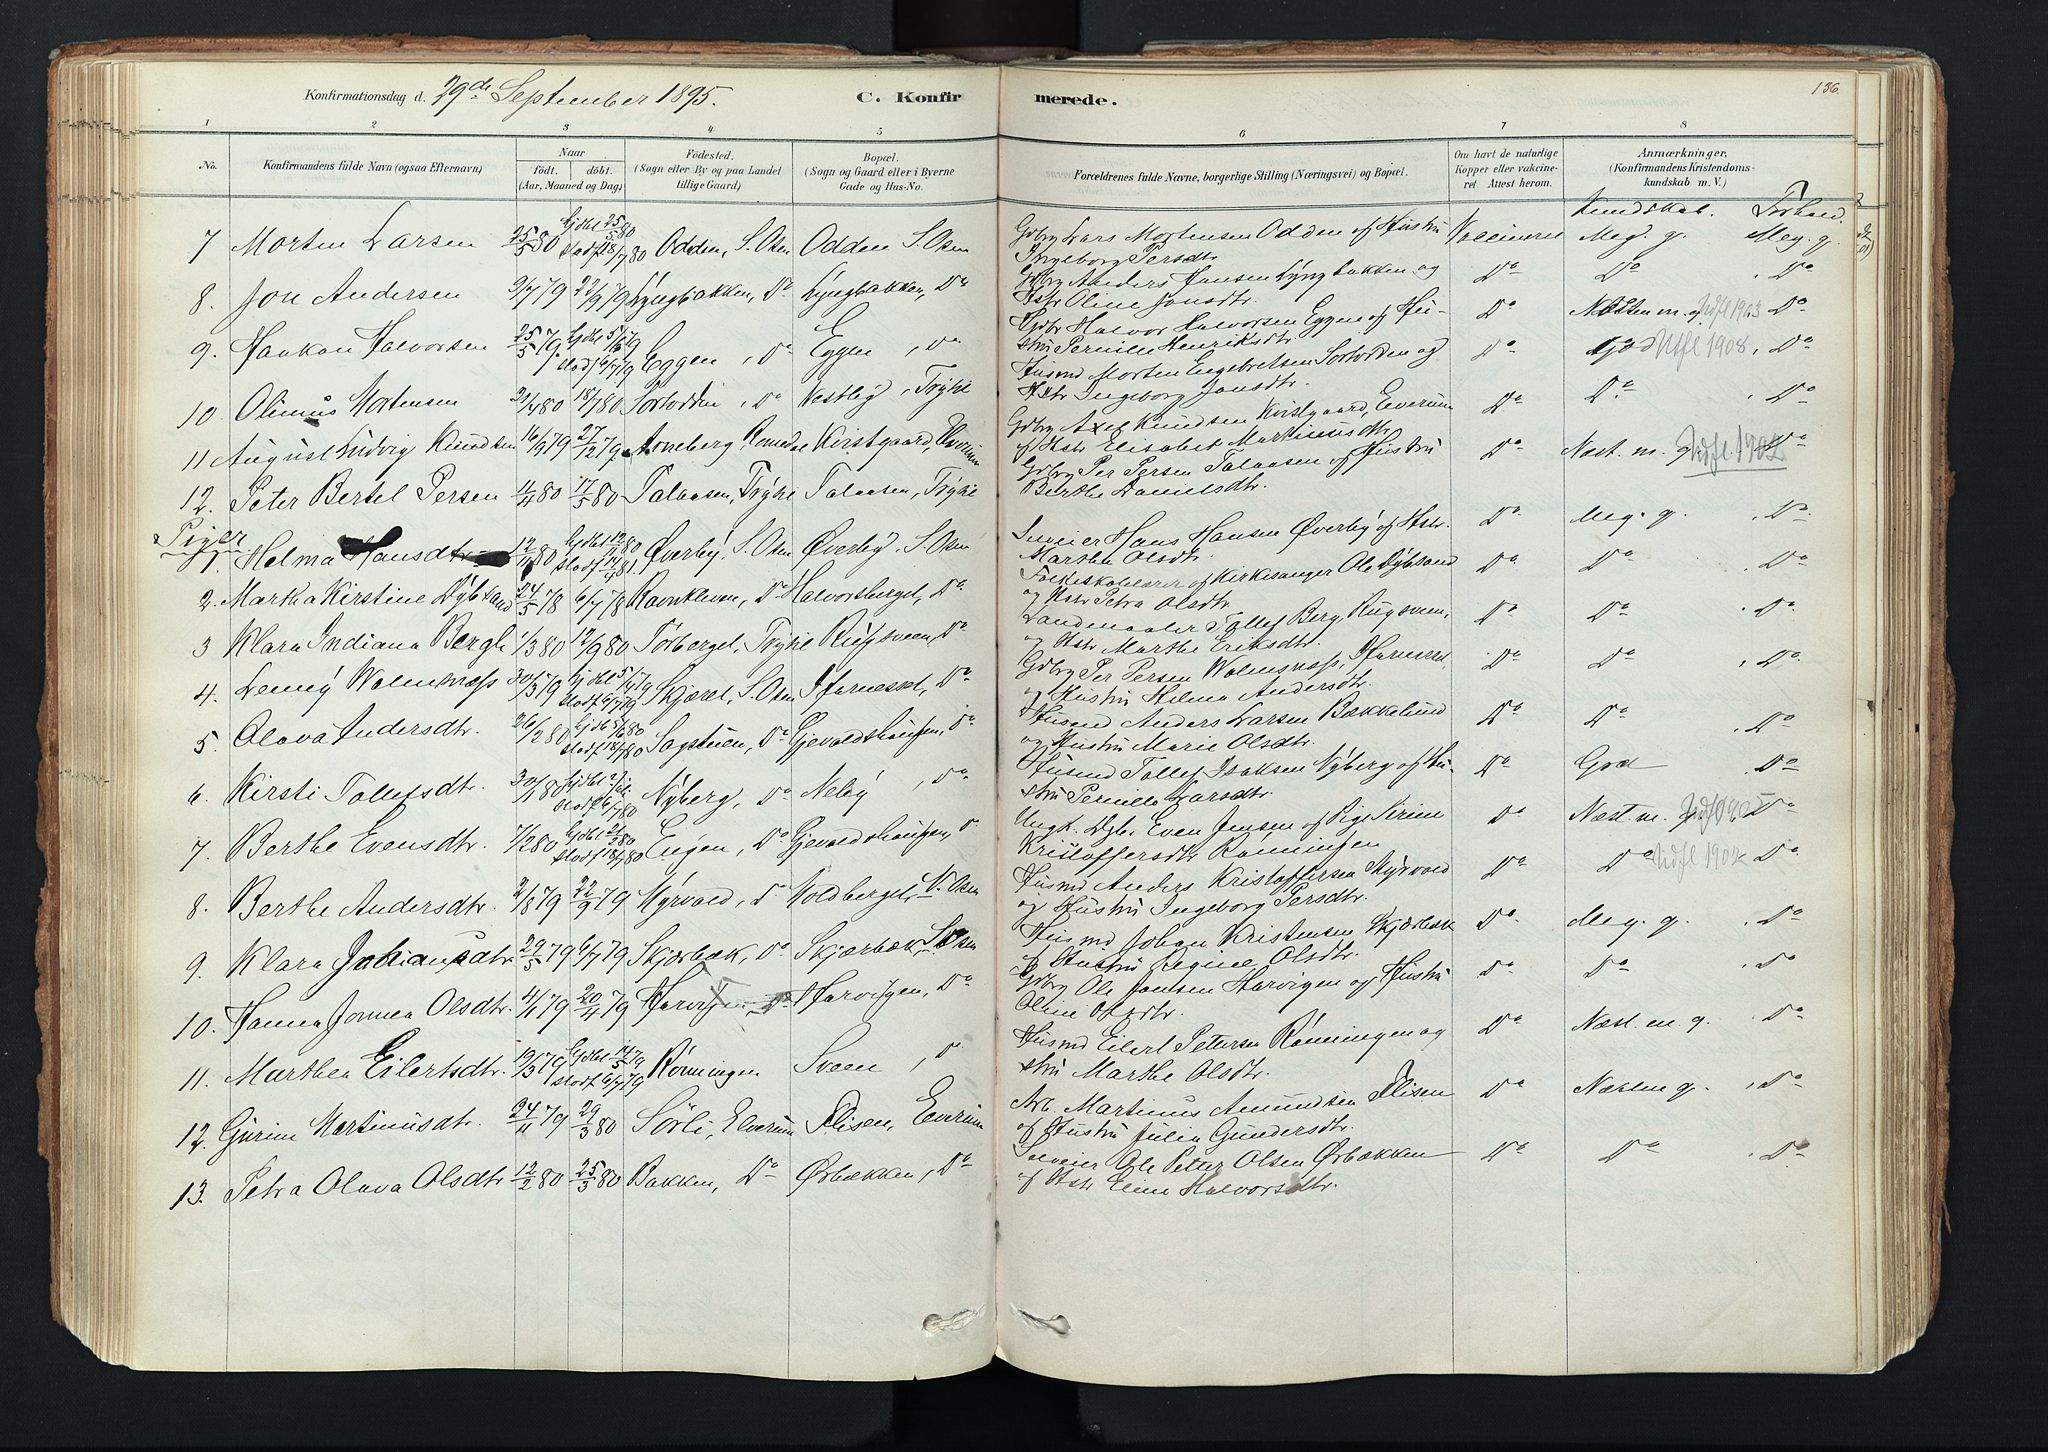 Konfirmationsdag d. 29de September 1895. C. Konfirmerede. 136.
1 2 3 4 5 6 7 8
No. Konfirmandens fulde Navn (ogsaa Efternavn) Naar födt. döbt. (Aar, Maaned og Dag) Födested. (Sogn eller By og paa Landet tillige Gaard) Bopæl. (Sogn og Gaard eller i Byerne Gade og Hus-No. Forældrenes fulde Navne, borgerlige Stilling (Næringsvei) og Bopæl. Om havt de naturlige Kopper eller vakcineret Attest herom. Anmærkninger, (Konfirmandens Kristendomskundskab m. V.)
Kundskab. Forhold.
7 Morten Larsen 25/5 80 Hjdbt 25/5 80 Stadf 18/7 80 Odden, S. Osen Odden S. Osen Gdbr Lars Mortensen Odden og Hustru Ingeborg Persdtr Vaccineret Meg. g. Meg. g.
8. Jon Andersen 2/7 79 22/9 79 Lyngbakken, Do Lyngbakken, Do Gdbr Anders Hansen Lyngbakken og Hstr Oline Jonsdtr. Do Do Do
9. Haakon Halvorsen 25/5 79 Hjdbt 5/6 79 Stadf 6/7 79 Eggen, Do Eggen, Do Gdbr Halvor Halvorsen Eggen og Hustru Pernille Henriksdtr. Do Næsten m. g. Udfl 1903 Do
10. Olinus Mortensen 21/4 80 18/7 80 Sorlodden, Do Vestby, Trysil Husmd Morten Engebretsen Sorlodden og Hstr Ingeborg Jonsdtr. Do God Utfl 1908. Do
11 August Ludvig Knudsen 16/9 79 27/12 79 Arneberg Romedal Kvistgaard, Elverum Gdbr Axel Knudsen Kvistgaard, Elverum og Hstr Elisabet Martinusdtr Do Do Do
12. Peter Bertel Persen 11/4 80 17/5 80 Talaasen, Trysil Talaasen, Trysil Gdbr Per Persen Talaasen og Hustru Berthe Danielsdtr. Do Næst. m. g. Udfl 1902 Do
Piger
1. Helma Hansdtr 12/11 80 Hjdbt 12/12 80 Stadf 17/4 81. Øverby, S. Osen Øverby, S. Osen Hans Hansen Øverby og Hstr. Marthe Olsdtr. Do Meg. g. Do
2. Martha Kirstine Dybsand 24/5 78 6/7 78 Ravnkleven, Do Halvorsberget, Do Folkeskolelærer og Kirkesanger Ole Dybsand og Hstr Petra Olsdtr. Do Do Do
3 Klara Indiana Bergli 1/3 80 12/9 80 Torberget, Trysil Rugsveen, Do Landmaaler Tollef Berg, Rugsveen, og Hstr Marthe Eriksdtr. Do Do Do
4. Lenny Walmsnæss 30/3 79 Hjdbt 5/4 79 Stadf 6/7 79 Skjæret, S. Osen Starneset, Do Gdbr Per Persen Walmsnæss, Starneset, og Hustru Helma Andersdtr. Do Do Do
5. Olava Andersdtr. 26/2 80 Hjdbt 5/6 80 Stadf 18/7 80 Sagstuen, Do Gjevaldshaugen, Do Husmd Anders Larsen Bækkelund og Hustru Marie Olsdtr. Do Do Do
6. Kirsti Tollefsdtr. 30/1 80 Nyberg, Do Neby, Do Husmd Tollef Isaksen Nyberg og Hustru Pernille Larsdtr. Do God Do
7. Berthe Evensdtr. 7/2 80 Stadf 18/7 80 Engen, Do Gjevaldshaugen, Do Ungk. Dgbr. Even Jensen og Pige Kristoffersdtr Rønningen Do Næst. m. Do
8. Berthe Andersdtr. 2/8 79 22/9 79 Myrvold, Do Moldberget, N. Osen Husmd Anders Kristoffersen Myrvold og Hustru Ingeborg Persdtr. Do Do Udfl 1902 Do
9. Klara Johansdtr. 29/5 79 6/7 79 Skjærbæk, Do Skjærbæk S. Osen Husmd Johan Kristensen Skjærbæk og Hustru Regine Olsdtr. Do Meg. g. Do
10. Hanna Jonnea Olsdtr. 4/1 79 20/4 79 Harvigen Do Harvigen, Do Gdbr Ole Jonsen Harvigen og Hustru Oline Olsdtr. Do Do Do
11. Marthea Eilertsdtr. 19/3 79 Hjdbt 14/5 79 Stadf 6/7 79 Rønningen Sveen, Do Husmd Eilert Petersen Rønningen og Hustru Marthe Olsdtr. Do Næst. m. g. Do
12. Gurine Martinusdtr. 24/11 79 29/3 80 Sørli, Elverum Flisen, Elverum Arb. Martinus Amundsen Flisen og Hustru Julia Gundersdtr. Do Næsten g. Do
13. Petra Olava Olsdtr 12/2 80 25/3 80 Bakken, Do Ørbækken, Do Ole Peter Olsen Ørbækken og Hstr Eline Halvorsdtr. Do Do Do